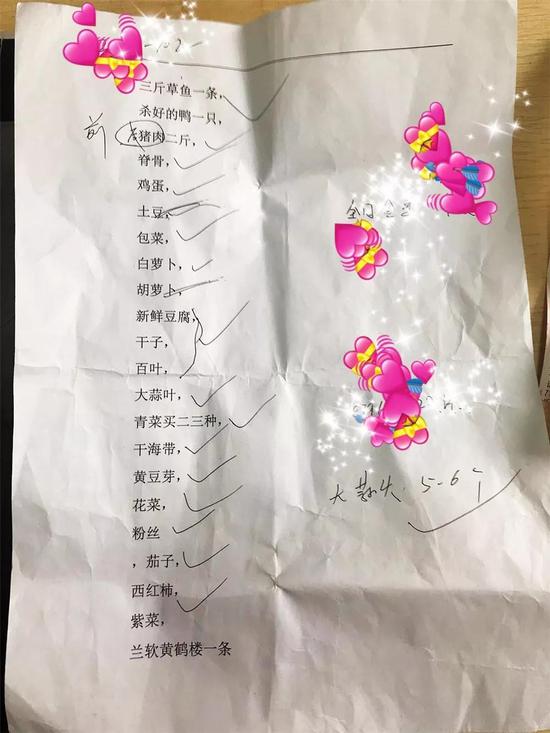 三斤草鱼一条，
杀好的鸭一只，
前 猪肉二斤，
脊骨，
鸡蛋，
土豆，
包菜，
白萝卜，
胡萝卜，
新鲜豆腐，
干子，
百叶，
大蒜叶，
青菜买二三种，
干海带，
黄豆芽，
大蒜头：5-6个
花菜，
粉丝
，茄子，
西红柿，
紫菜，
兰软黄鹤楼一条